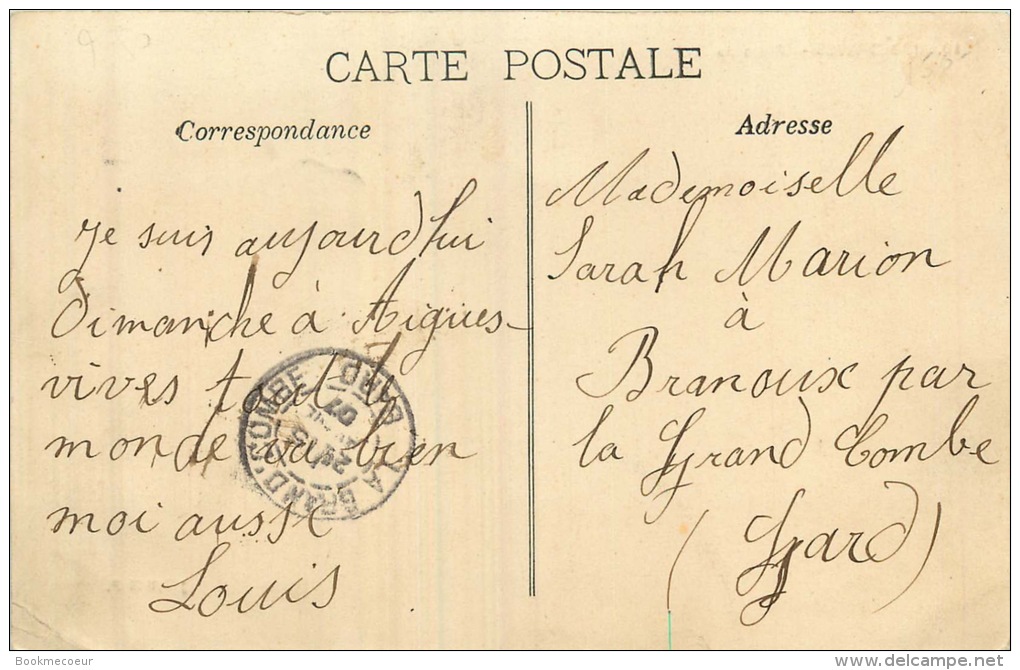 CARTE POSTALE
Correspondance
je suis aujourd'hui
Dimanche à Aigues-
vives tout le
monde va bien
moi aussi
Louis
Adresse
Mademoiselle
Sarah Marion
à
Branoux par
la Grand Combe
(Gard)
LA GRAND'COMBE GARD
07
Bookmecoeur
delcampe.net